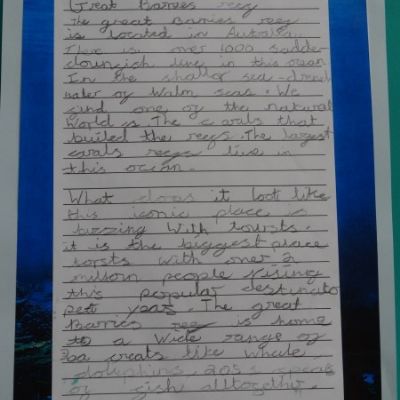 Great Barries reey
The great Barries reey
is located in Autralia.
There is over 1000 sadder
clounfish live in this ocean
In the shallor sea
water of Walm seas. We
find one of the natural
World s. The corals that
builed the reefs. The largest
corals reefs live in
this ocean.
What does it loot like
this iconic place is
buzzing With toursts.
it is the biggest place
torsts with over 2
millson people visiing
this popular destinato
pet year. The great
Barries reey is home
to a wide range of
creats like whale
dolephins. 205s
of fish alltogether.